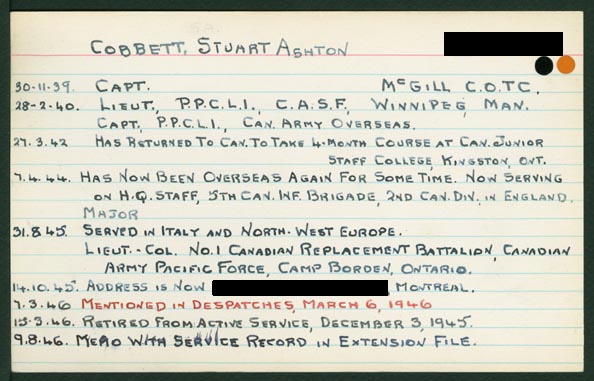 COBBETT, STUART ASHTON
30-11-39. CAPT. McGILL C.O.T.C.
28-2-40. LIEUT., P.P.C.L.I., C.A.S.F., WINNIPEG, MAN.
CAPT., P.P.C.L.I., CAN. ARMY OVERSEAS.
27.3.42 HAS RETURNED TO CAN. TO TAKE 4-MONTH COURSE AT CAN. JUNIOR
STAFF COLLEGE, KINGSTON, ONT.
7.4.44. HAS NOW BEEN OVERSEAS AGAIN FOR SOME TIME. NOW SERVING
ON H.Q. STAFF, 5TH CAN. INF. BRIGADE, 2ND CAN. DIV. IN ENGLAND.
MAJOR
31.8.45. SERVED IN ITALY AND NORTH-WEST EUROPE.
LIEUT.-COL. NO.1 CANADIAN REPLACEMENT BATTALION, CANADIAN
ARMY PACIFIC FORCE, CAMP BORDEN, ONTARIO.
14.10.45. ADDRESS IS NOW MONTREAL.
7.3.46 MENTIONED IN DESPATCHES, MARCH 6, 1946
15.3.46. RETIRED FROM ACTIVE SERVICE, DECEMBER 3, 1945.
9.8.46. MEMO WITH SERVICE RECORD IN EXTENSION FILE.